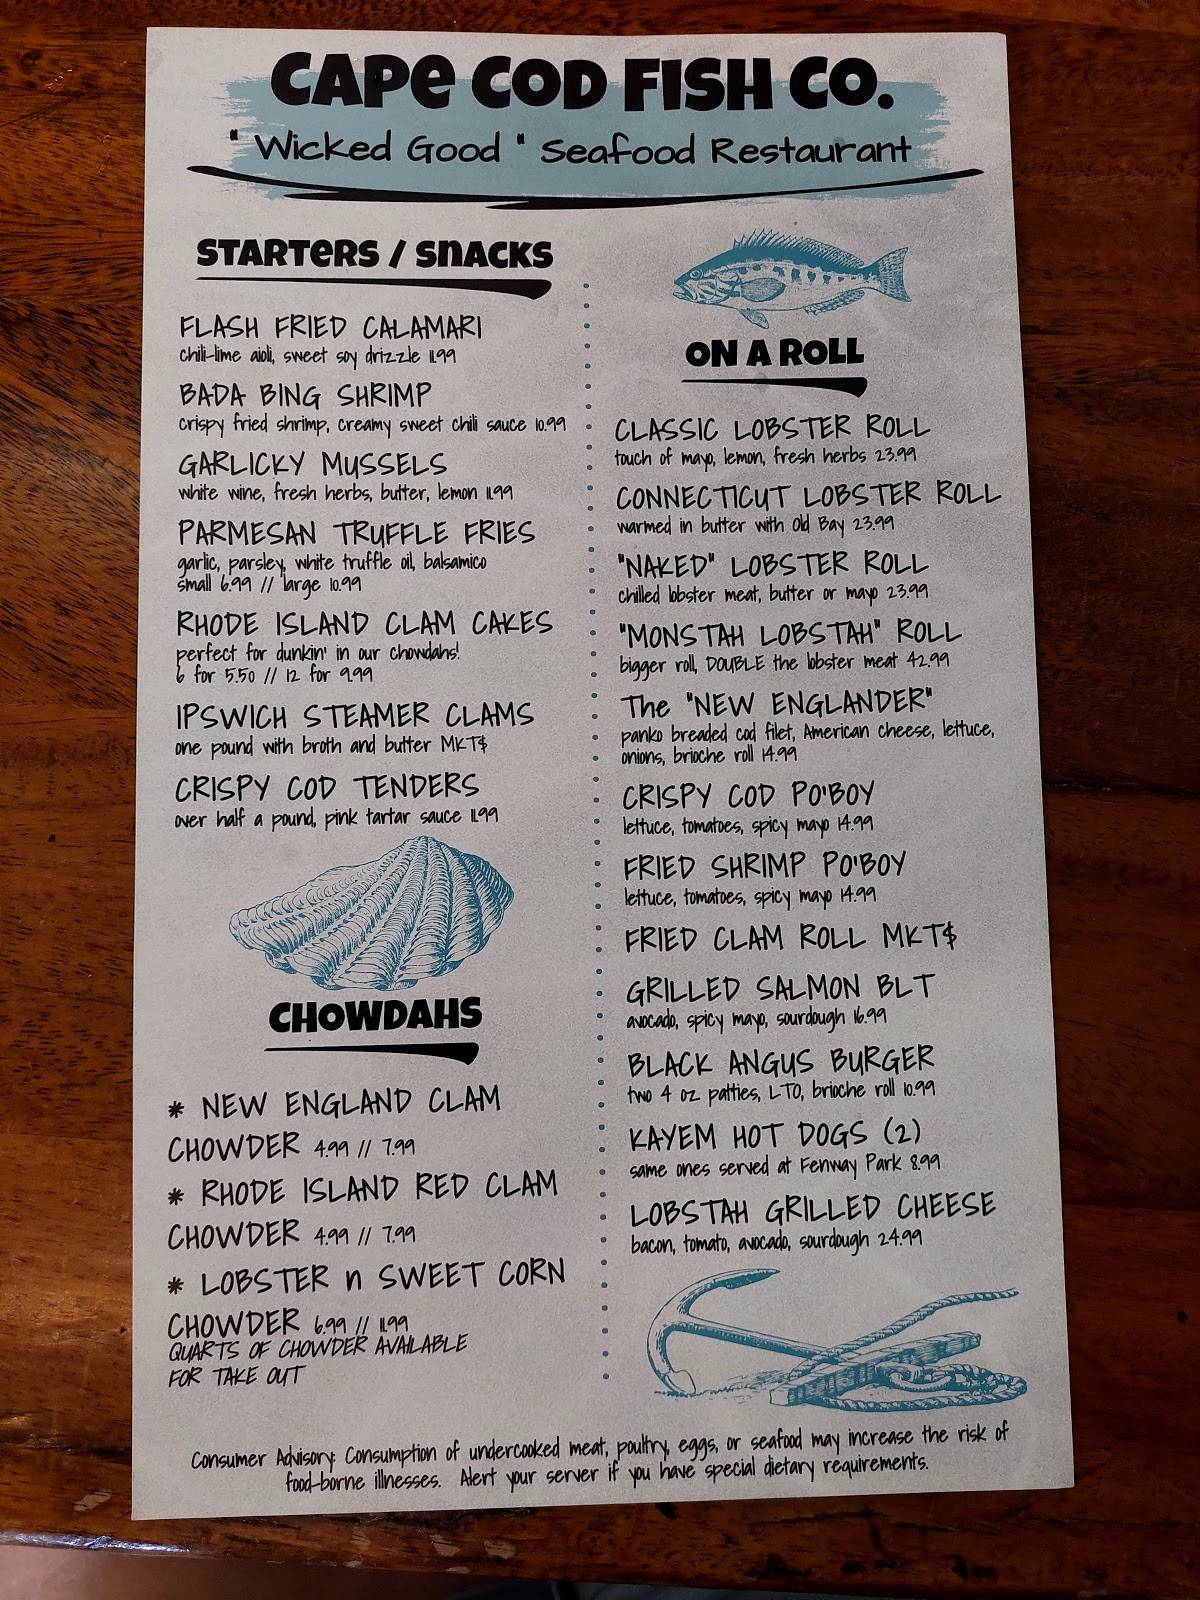 CAPe COD FISH CO.
" Wicked Good " Seafood Restaurant
STARTeRS / SnACKS
FLASH FRIED CALAMARI
chili-lime aioli, sweet soy drizzle 11.99
BADA BING SHRIMP
crispy fried shrimp, creamy sweet chili sauce 10.99
GARLICKY MUSSELS
white wine, fresh herbs, butter, lemon 11.99
PARMESAN TRUFFLE FRIES
garlic, parsley, white truffle oil, balsamico
small 6.99 // large 10.99
RHODE ISLAND CLAM CAKES
perfect for dunkin' in our chowdahs!
6 for 5.50 // 12 for 9.99
IPSWICH STEAMER CLAMS
one pound with broth and butter MKT$
CRISPY COD TENDERS
over half a pound, pink tartar sauce 11.99
CHOWDAHS
* NEW ENGLAND CLAM
CHOWDER 4.99 // 7.99
* RHODE ISLAND RED CLAM
CHOWDER 4.99 // 7.99
* LOBSTER n SWEET CORN
CHOWDER 6.99 // 11.99
QUARTS OF CHOWDER AVAILABLE
FOR TAKE OUT
ON A ROLL
CLASSIC LOBSTER ROLL
touch of mayo, lemon, fresh herbs 23.99
CONNECTICUT LOBSTER ROLL
warmed in butter with Old Bay 23.99
"NAKED" LOBSTER ROLL
chilled lobster meat, butter or mayo 23.99
"MONSTAH LOBSTAH" ROLL
bigger roll, DOUBLE the lobster meat 42.99
The "NEW ENGLANDER"
panko breaded cod filet, American cheese, lettuce,
onions, brioche roll 14.99
CRISPY COD PO'BOY
lettuce, tomatoes, spicy mayo 14.99
FRIED SHRIMP PO'BOY
lettuce, tomatoes, spicy mayo 14.99
FRIED CLAM ROLL MKT$
GRILLED SALMON BLT
avocado, spicy mayo, sourdough 16.99
BLACK ANGUS BURGER
two 4 oz patties, LTO, brioche roll 10.99
KAYEM HOT DOGS (2)
same ones served at Fenway Park 8.99
LOBSTAH GRILLED CHEESE
bacon, tomato, avocado, sourdough 24.99
Consumer Advisory: Consumption of undercooked meat, poultry, eggs, or seafood may increase the risk of
food-borne illnesses. Alert your server if you have special dietary requirements.